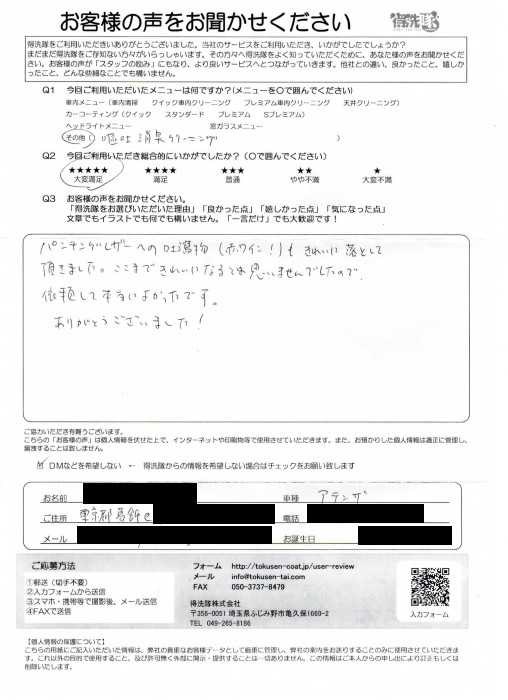 お客様の声をお聞かせください
得洗隊
得洗隊をご利用いただきありがとうございました。当社のサービスをご利用いただき、いかがでしたでしょうか?
まだまだ得洗隊をご存知ない方々がいらっしゃいます。その方々へ得洗隊をよく知っていただくために、あなた様の声をお聞かせください。お客様の声が「スタッフの励み」にもなり、より良いサービスへとつながっていきます。他社との違い、良かったこと、嬉しかったこと、どんな些細なことでも構いません。
Q1 今回ご利用いただいたメニューは何ですか?(メニューを〇で囲んでください)
車内メニュー(車内清掃 クイック車内クリーニング プレミアム車内クリーニング 天井クリーニング)
カーコーティング(クイック スタンダード プレミアム Sプレミアム)
ヘッドライトメニュー 窓ガラスメニュー
その他( 嘔吐消臭クリーニング )
Q2 今回ご利用いただき総合的にいかがでしたか?(〇で囲んでください)
★★★★★ ★★★★ ★★★ ★★ ★
大変満足 満足 普通 やや不満 大変不満
Q3 お客様の声をお聞かせください。
「得洗隊をお選びいただいた理由」「良かった点」「嬉しかった点」「気になった点」
文章でもイラストでも何でも構いません。「一言だけ」でも大歓迎です!
パンチングレザーへの吐瀉物(赤ワイン!)もきれいに落として
頂きました。ここまできれいになるとは思いませんでしたので、
依頼して本当によかったです。
ありがとうございました!
ご協力いただき有難うございます。
こちらの「お客様の声」は個人情報を伏せた上で、インターネットや印刷物等で使用させていただきます。また、お預かりした個人情報は適正に管理し、
漏洩することは致しません。
DMなどを希望しない ← 得洗隊からの情報を希望しない場合はチェックをお願い致します
お名前 車種 アテンザ
ご住所 東京都葛飾区 電話
メール お誕生日
ご応募方法
①郵送(切手不要)
②入力フォームから送信
③スマホ・携帯等で撮影後、メール送信
④FAXで送信
フォーム http://tokusen-coat.jp/user-review
メール info@tokusen-tai.com
FAX 050-3737-8479
得洗隊株式会社
〒356-0051 埼玉県ふじみ野市亀久保1669-2
TEL 049-265-8186
入力フォーム
【個人情報の保護について】
こちらの用紙にご記入いただいた情報は、弊社の貴重なお客様データとして厳重に管理し、弊社の案内をお送りすることのみに使用させていただきま
す。これ以外の目的で使用すること、及び許可無く外部に開示・提供することは一切ありません。この情報はご本人からの申し出により訂正もしくは
削除いたします。